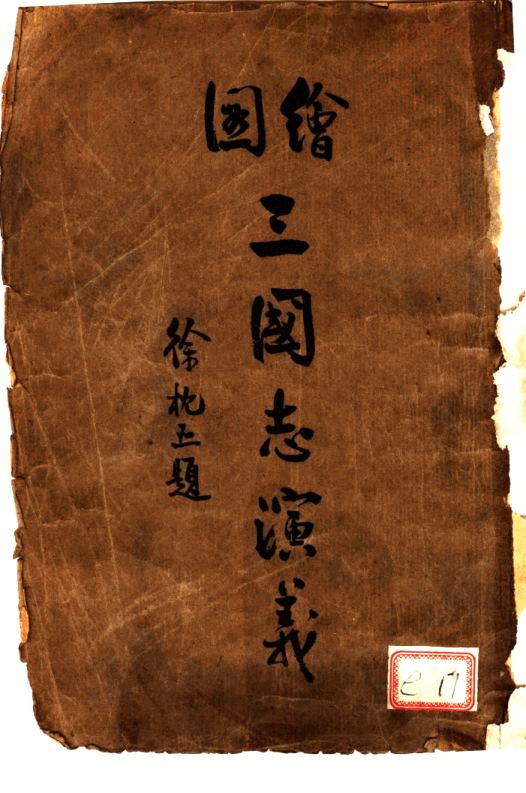 繪圖
三國志演義
徐枕亞題